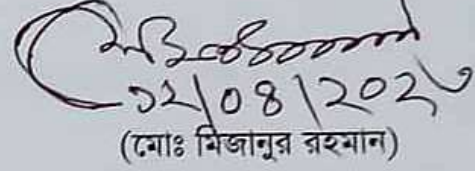 ১২/০৪/২০২৬
(মোঃ মিজানুর রহমান)